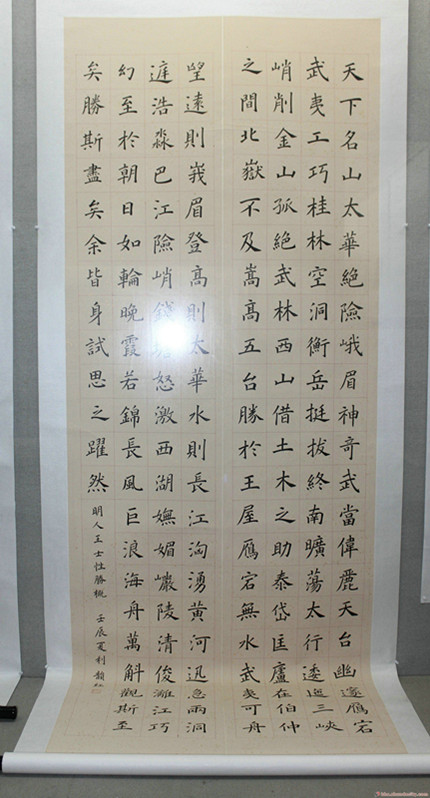 天下名山太華絕險峨眉神奇武當偉麗天台幽邃鴈宕
武夷工巧桂林空洞衡岳挺拔終南曠蕩太行逶迤三峽
峭削金山孤絕武林西山借土木之助泰岱匡廬在伯仲
之間北嶽不及嵩高五台勝於王屋鴈宕無水武夷可舟
朢遠則峩眉登高則太華水則長江洶湧黄河迅急兩洞
庭浩淼巴江險峭錢塘怒激西湖嫵媚巖陵清俊灕江巧
幻至於朝日如輪晚霞若錦長風巨浪海舟萬斛觀斯至
矣勝斯盡矣余皆身試思之躍然
明人王士性勝概 壬辰夏利